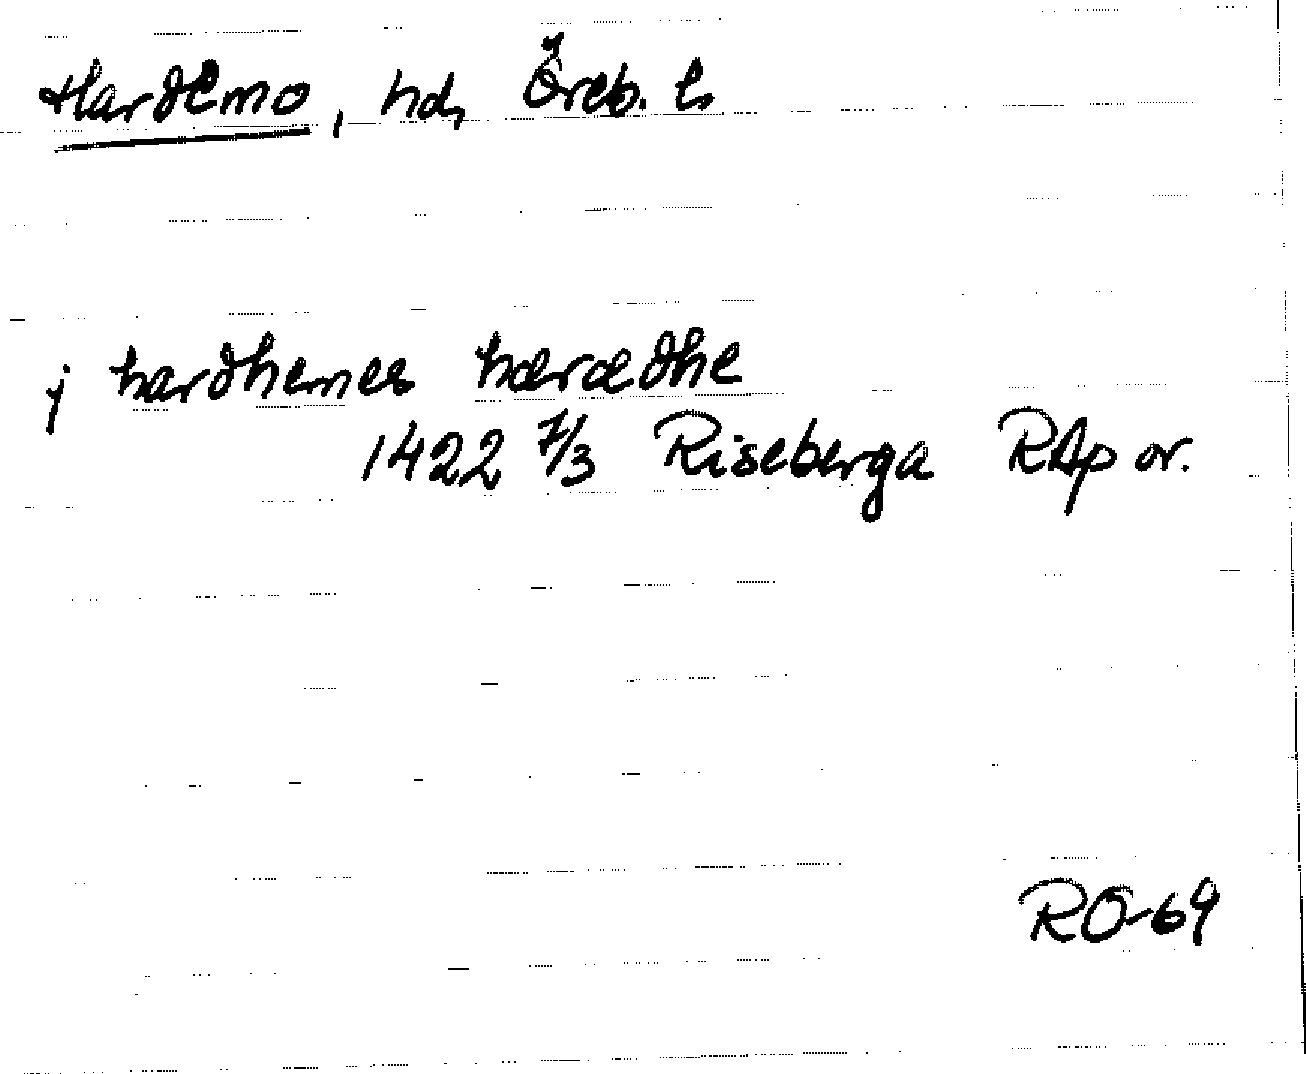 Hardemo, hd, Öreb. l.
j hardhemes hæradhe
1422 7/3 Riseberga RAp or.
RO-69